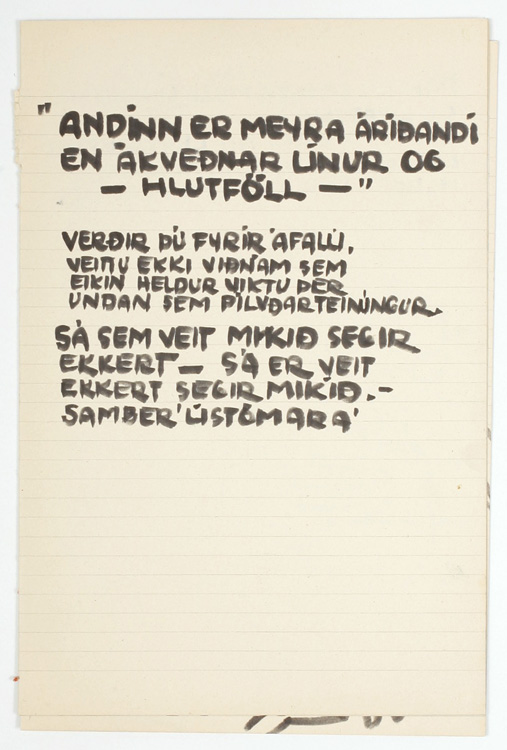 "ANDINN ER MEYRA ÁRIÐANDI
EN ÁKVEÐNAR LÍNUR OG
– HLUTFÖLL –"
VERÐIR ÞÚ FYRIR ÁFALLI,
VEITTU EKKI VIÐNÁM SEM
EIKIN HELDUR VIKTU ÞÉR
UNDAN SEM PÍLVÐARTEINÚNGUR.
SÁ SEM VEIT MIKIÐ SEGIR
EKKERT – SÁ ER VEIT
EKKERT SEGIR MIKIÐ.–
SAMBER 'LISTÓMARA'